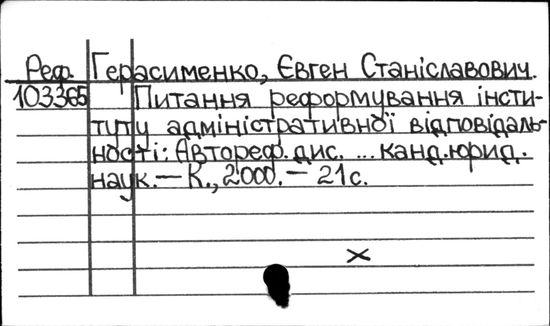 Реф. Герасименко, Євген Станіславович.
103365 Питання реформування інсти-
туту адміністративної відповідаль-
ності: Автореф. дис. ... канд. юрид.
наук. — К., 2000. — 21 с.